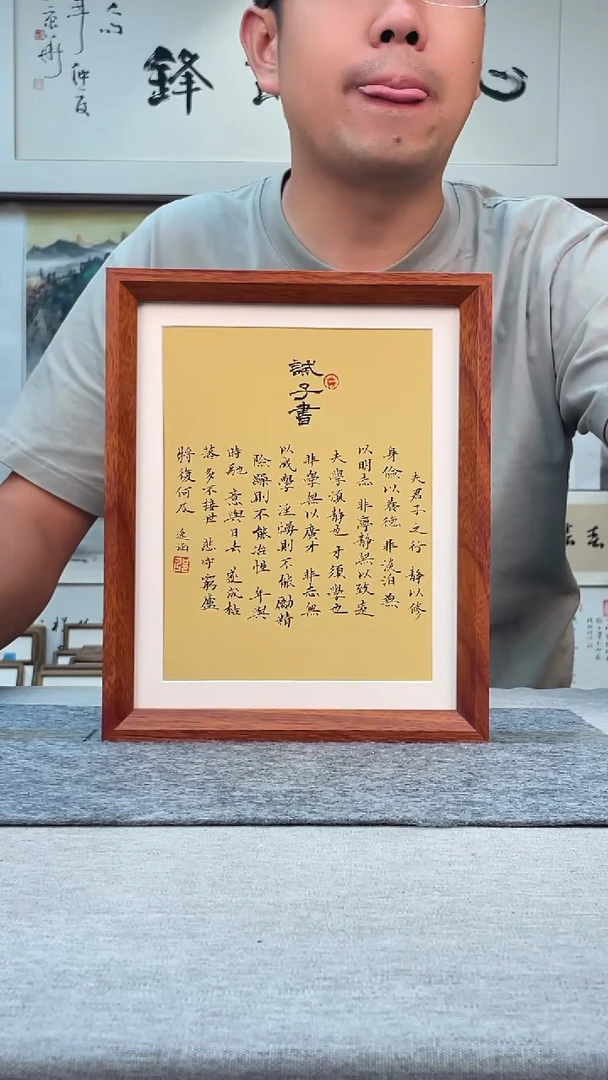 誡子書
夫君子之行 靜以修
身儉以養德 非淡泊無
以明志 非寧靜無以致遠
夫學須靜也 才須學也
非學無以廣才 非志無
以成學 淫慢則不能勵精
險躁則不能冶性 年與
時馳 意與日去 遂成枯
落 多不接世 悲守窮廬
將復何及
心
鋒